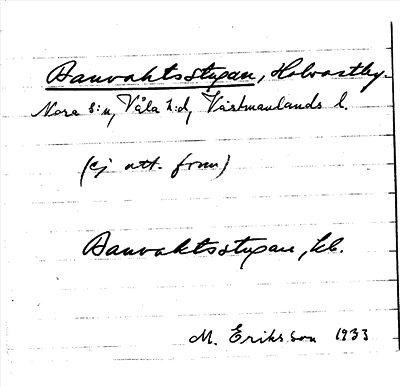 Banvaktsstugan, Holvastby.
Nora s:n, Våla h:d, Västmanlands l.
(ej utt. from)
Banvaktsstugan, kl.
M. Eriksson 1933